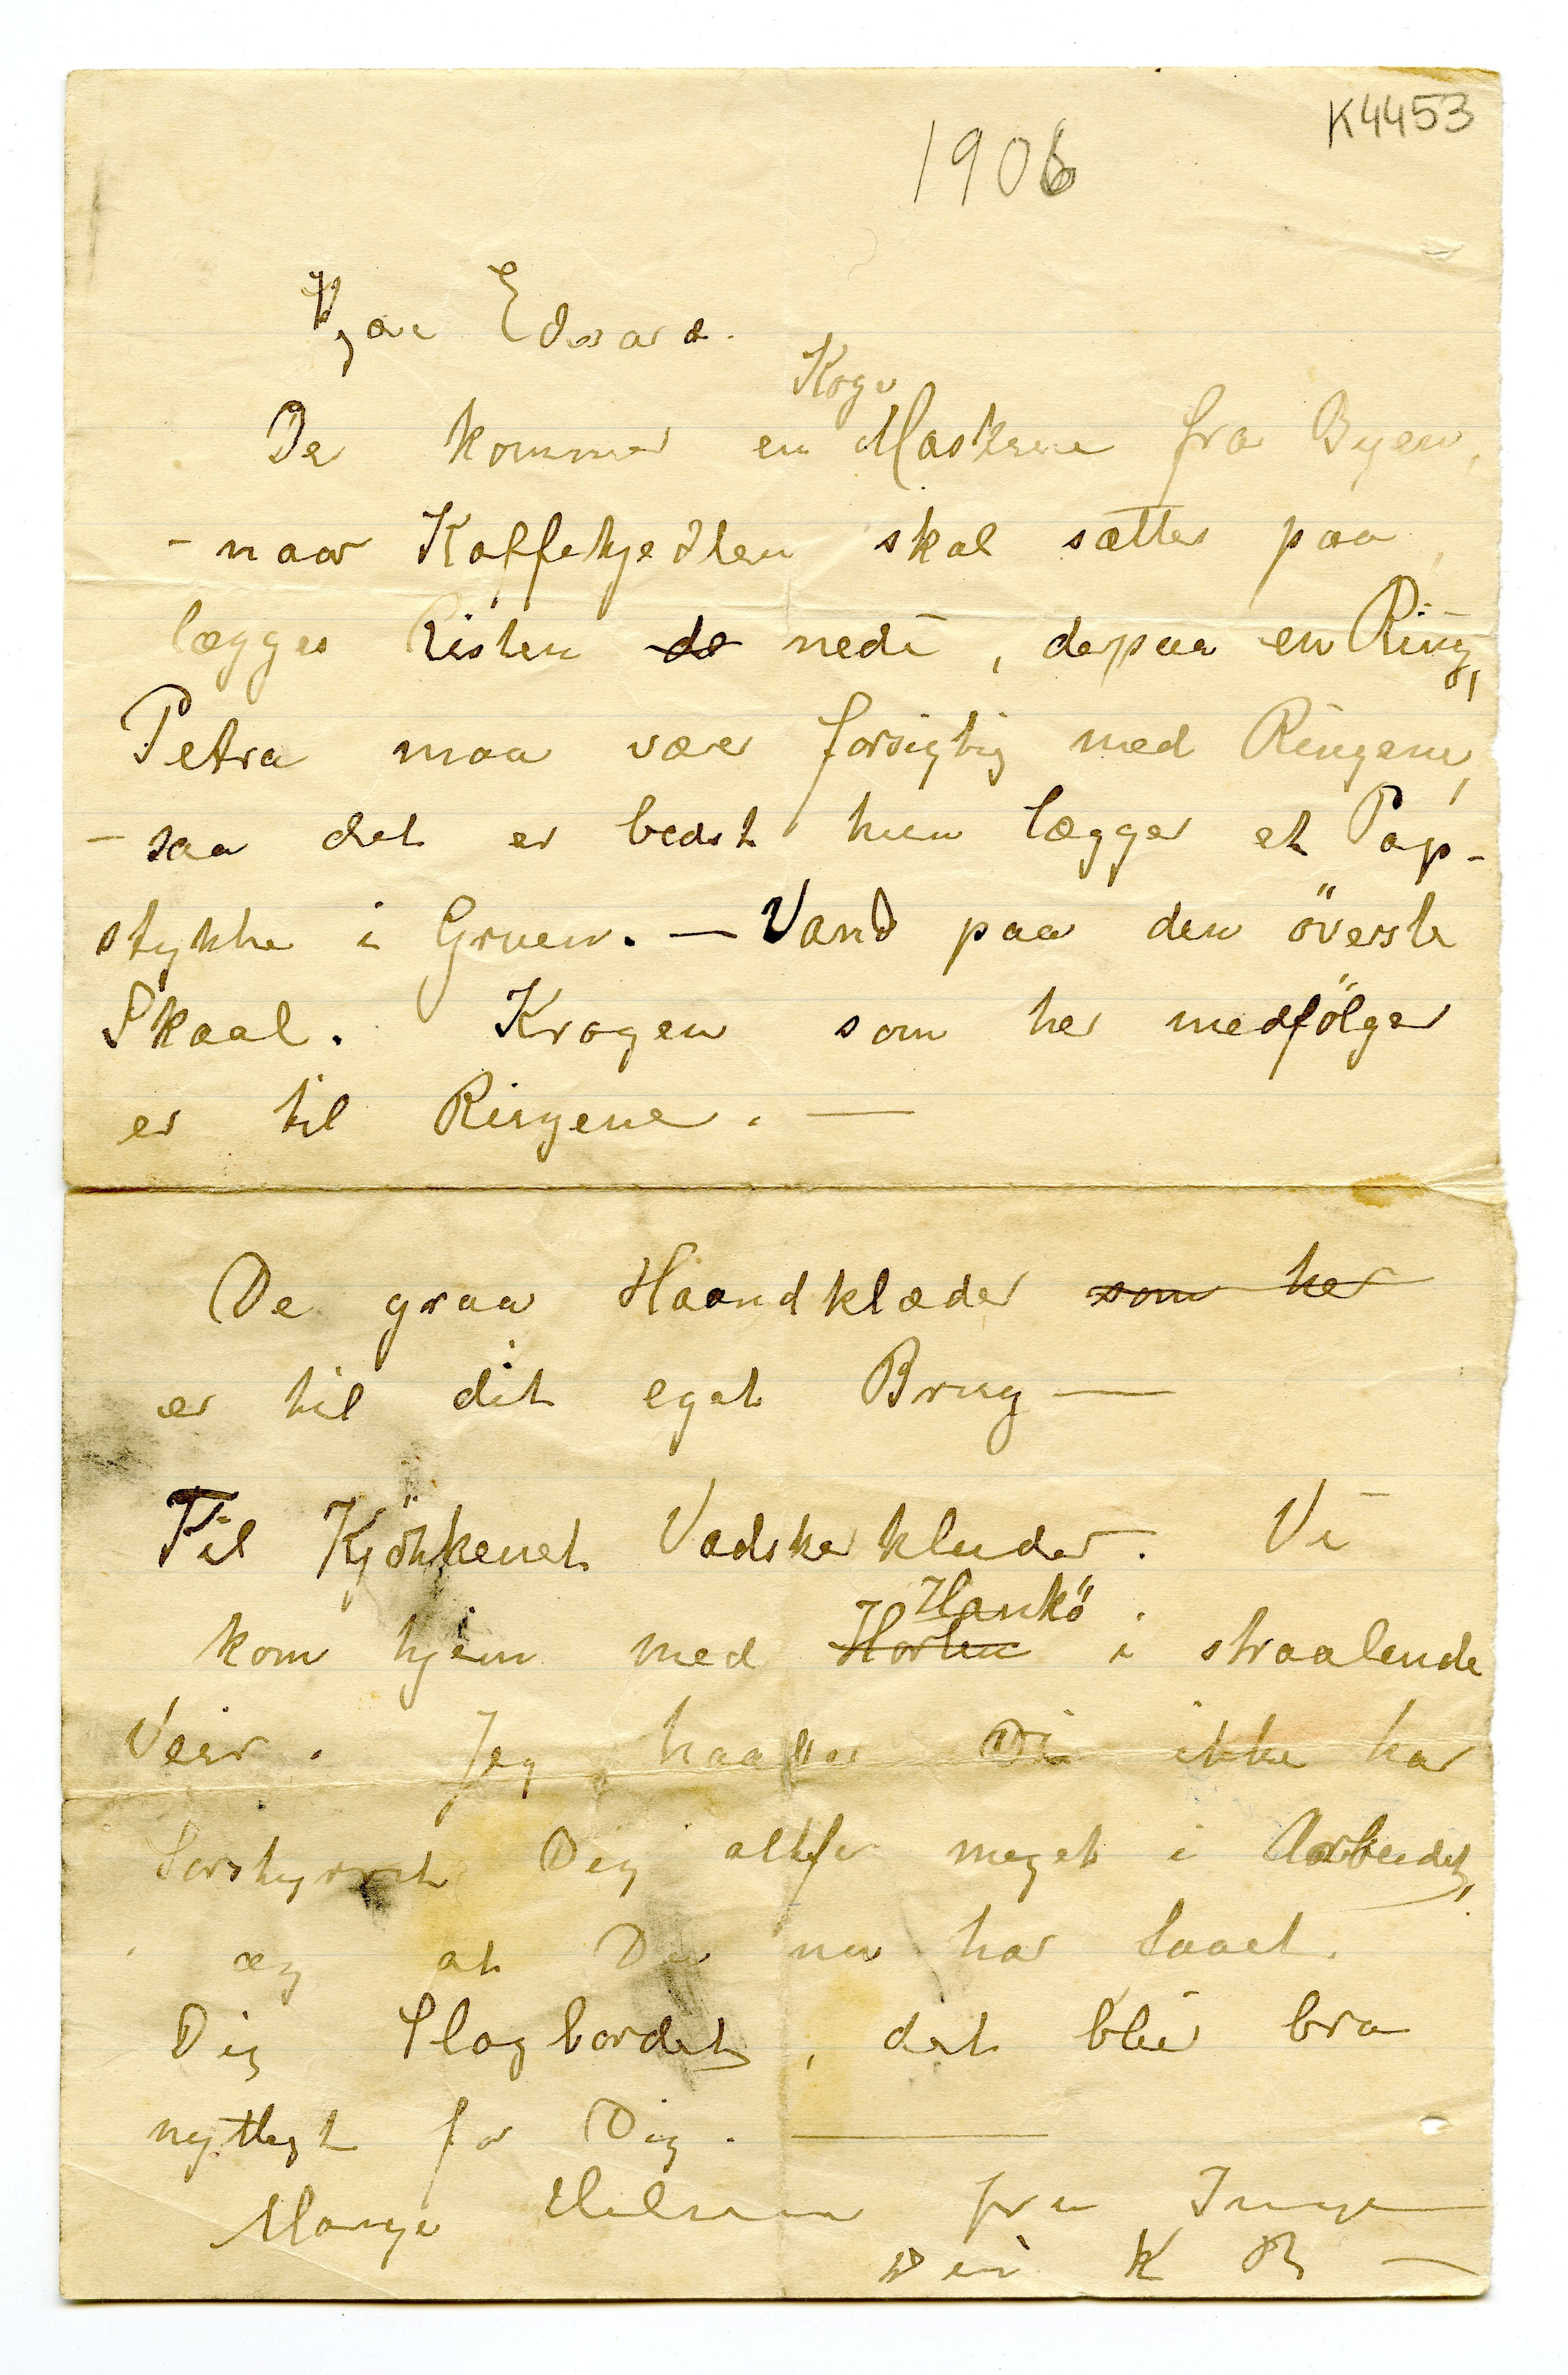 K4453
1906
Kjære Edvard.
Koge
De kommer en Maskine fra Byen,
- naar Kaffekjedlen skal sættes paa,
lægges Risten de nedi, derpaa en Ring,
Petra maa være forsigtig med Ringene,
- saa det er bedst hun lægger et Pap-
stykke i Gruen. — Vand paa den överste
Skaal. Krogen som her medfölger
er til Ringene. —
De graa Haandklæder som her
er til dit eget Brug —
Til Kjökkenet Vadskerkluder. Vi
Hankö
kom hjem med Horten i straalende
Veir. Jeg haaper Vi ikke har
forstyrret Dig altfor meget i Arbeidet,
og at Du nu har faaet
Dig Slagbordet, det blir bra
nyttigt for Dig. —
Mange Hilsener fra Inger
Din K B —